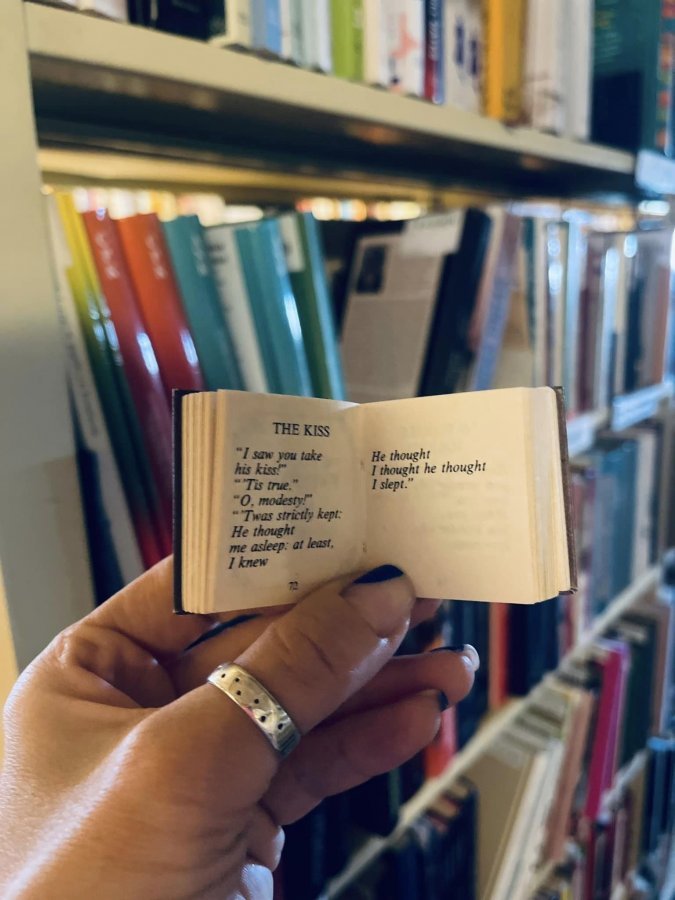 THE KISS
"I saw you take
his kiss!"
"'Tis true."
"O, modesty!"
"'Twas strictly kept:
He thought
me asleep: at least,
I knew
72
He thought
I thought he thought
I slept."